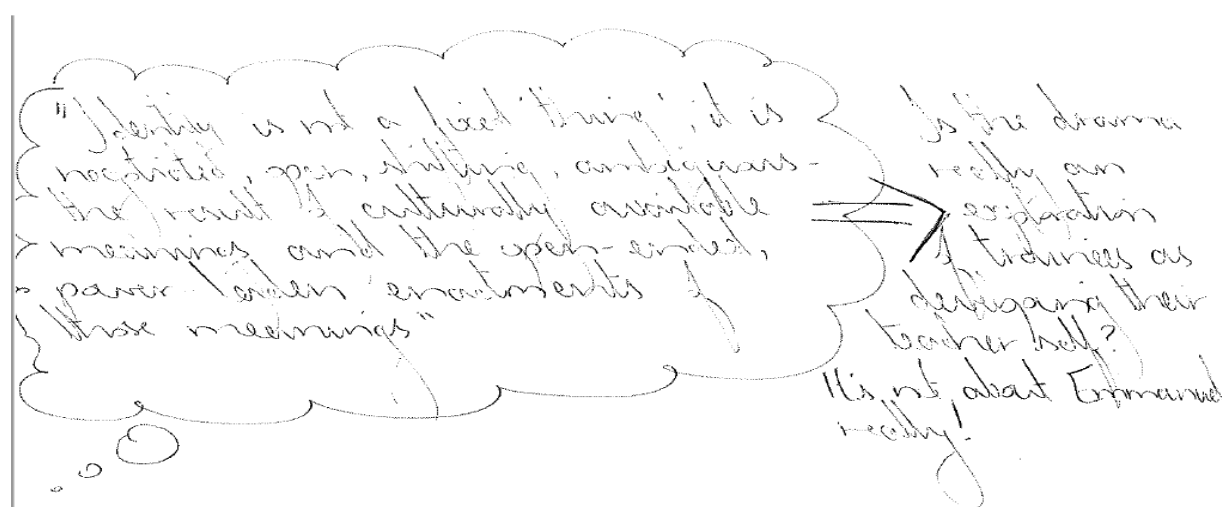 "Identity is not a fixed 'thing', it is
negotiated, open, shifting, ambiguous -
the result of culturally available
meanings and the open-ended,
power laden enactments of
those meanings"
Is the drama
really an
exploration
of trainees as
developing their
teacher self?
It's not about Emmanuel
really!